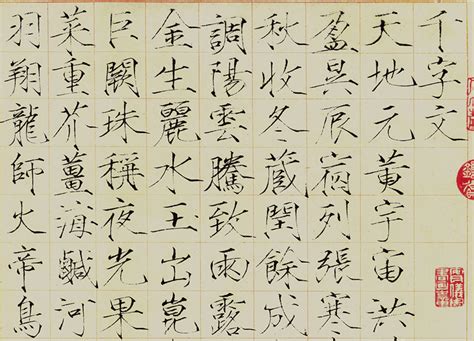 千字文
天地元黃宇宙洪
盈昃辰宿列張寒
秋收冬藏閏餘成
調陽雲騰致雨露
金生麗水玉出崑
巨闕珠稱夜光果
菜重芥薑海鹹河
羽翔龍師火帝鳥